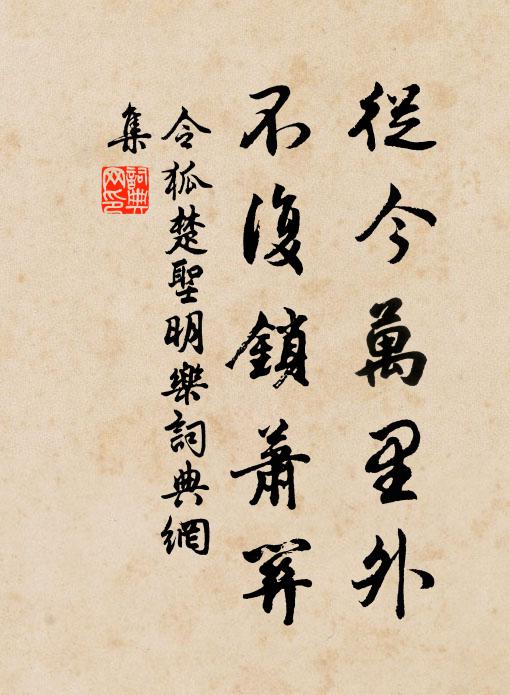 從今萬里外
不復鎖蕭關
令狐楚聖明樂詞典網
集
詞典
网印